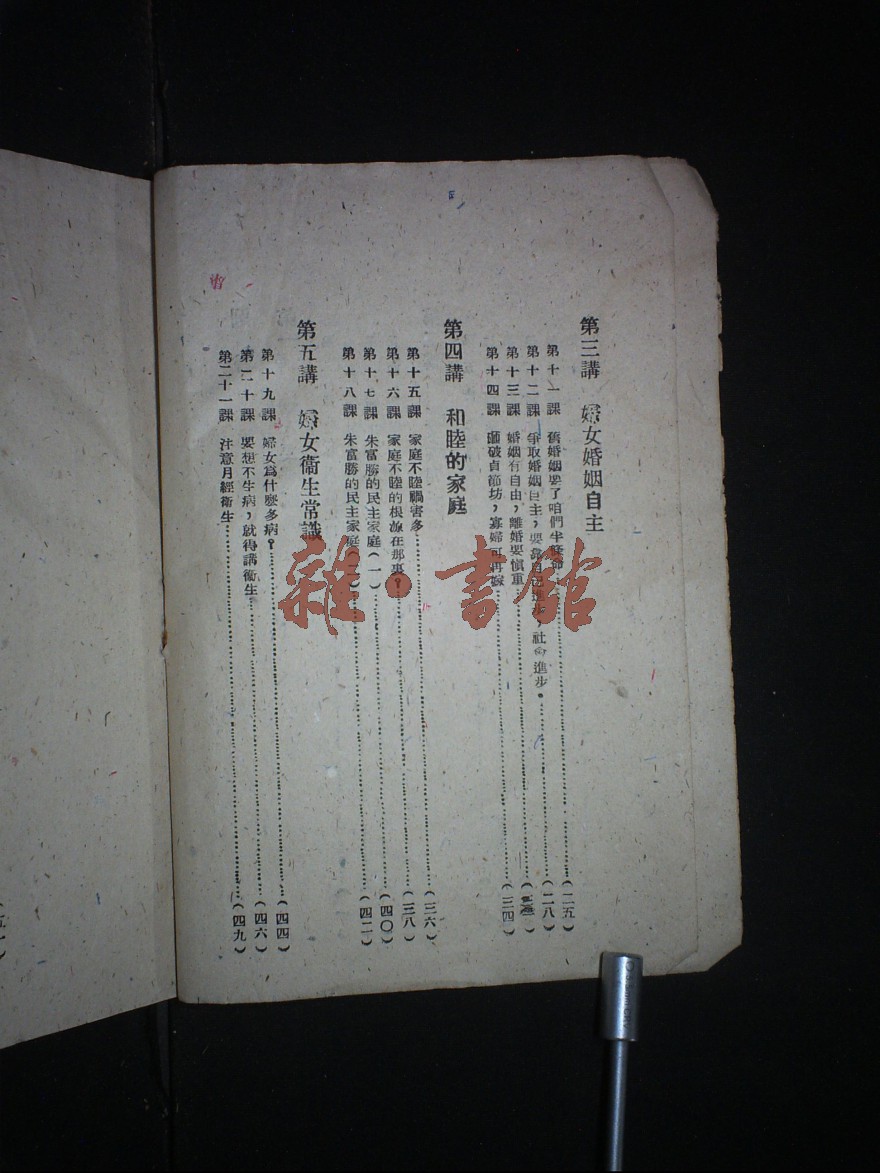 第三講 婦女婚姻自主
第十一課 舊婚姻要了咱們半條命(二五)
第十二課 爭取婚姻自主,要靠自己進步,社會進步。(二八)
第十三課 婚姻有自由,離婚要慎重
第十四課 砸破貞節坊,寡婦可再嫁(三四)
第四講 和睦的家庭
第十五課 家庭不睦禍害多(三六)
第十六課 家庭不睦的根源在那裏?(三八)
第十七課 朱富勝的民主家庭(一)(四〇)
第十八課 朱富勝的民主家庭(二)(四二)
第五講 婦女衞生常識
第十九課 婦女為什麽多病?(四四)
第二十課 要想不生病,就得講衞生(四六)
第二十一課 注意月經衞生(四九)
雜·書館